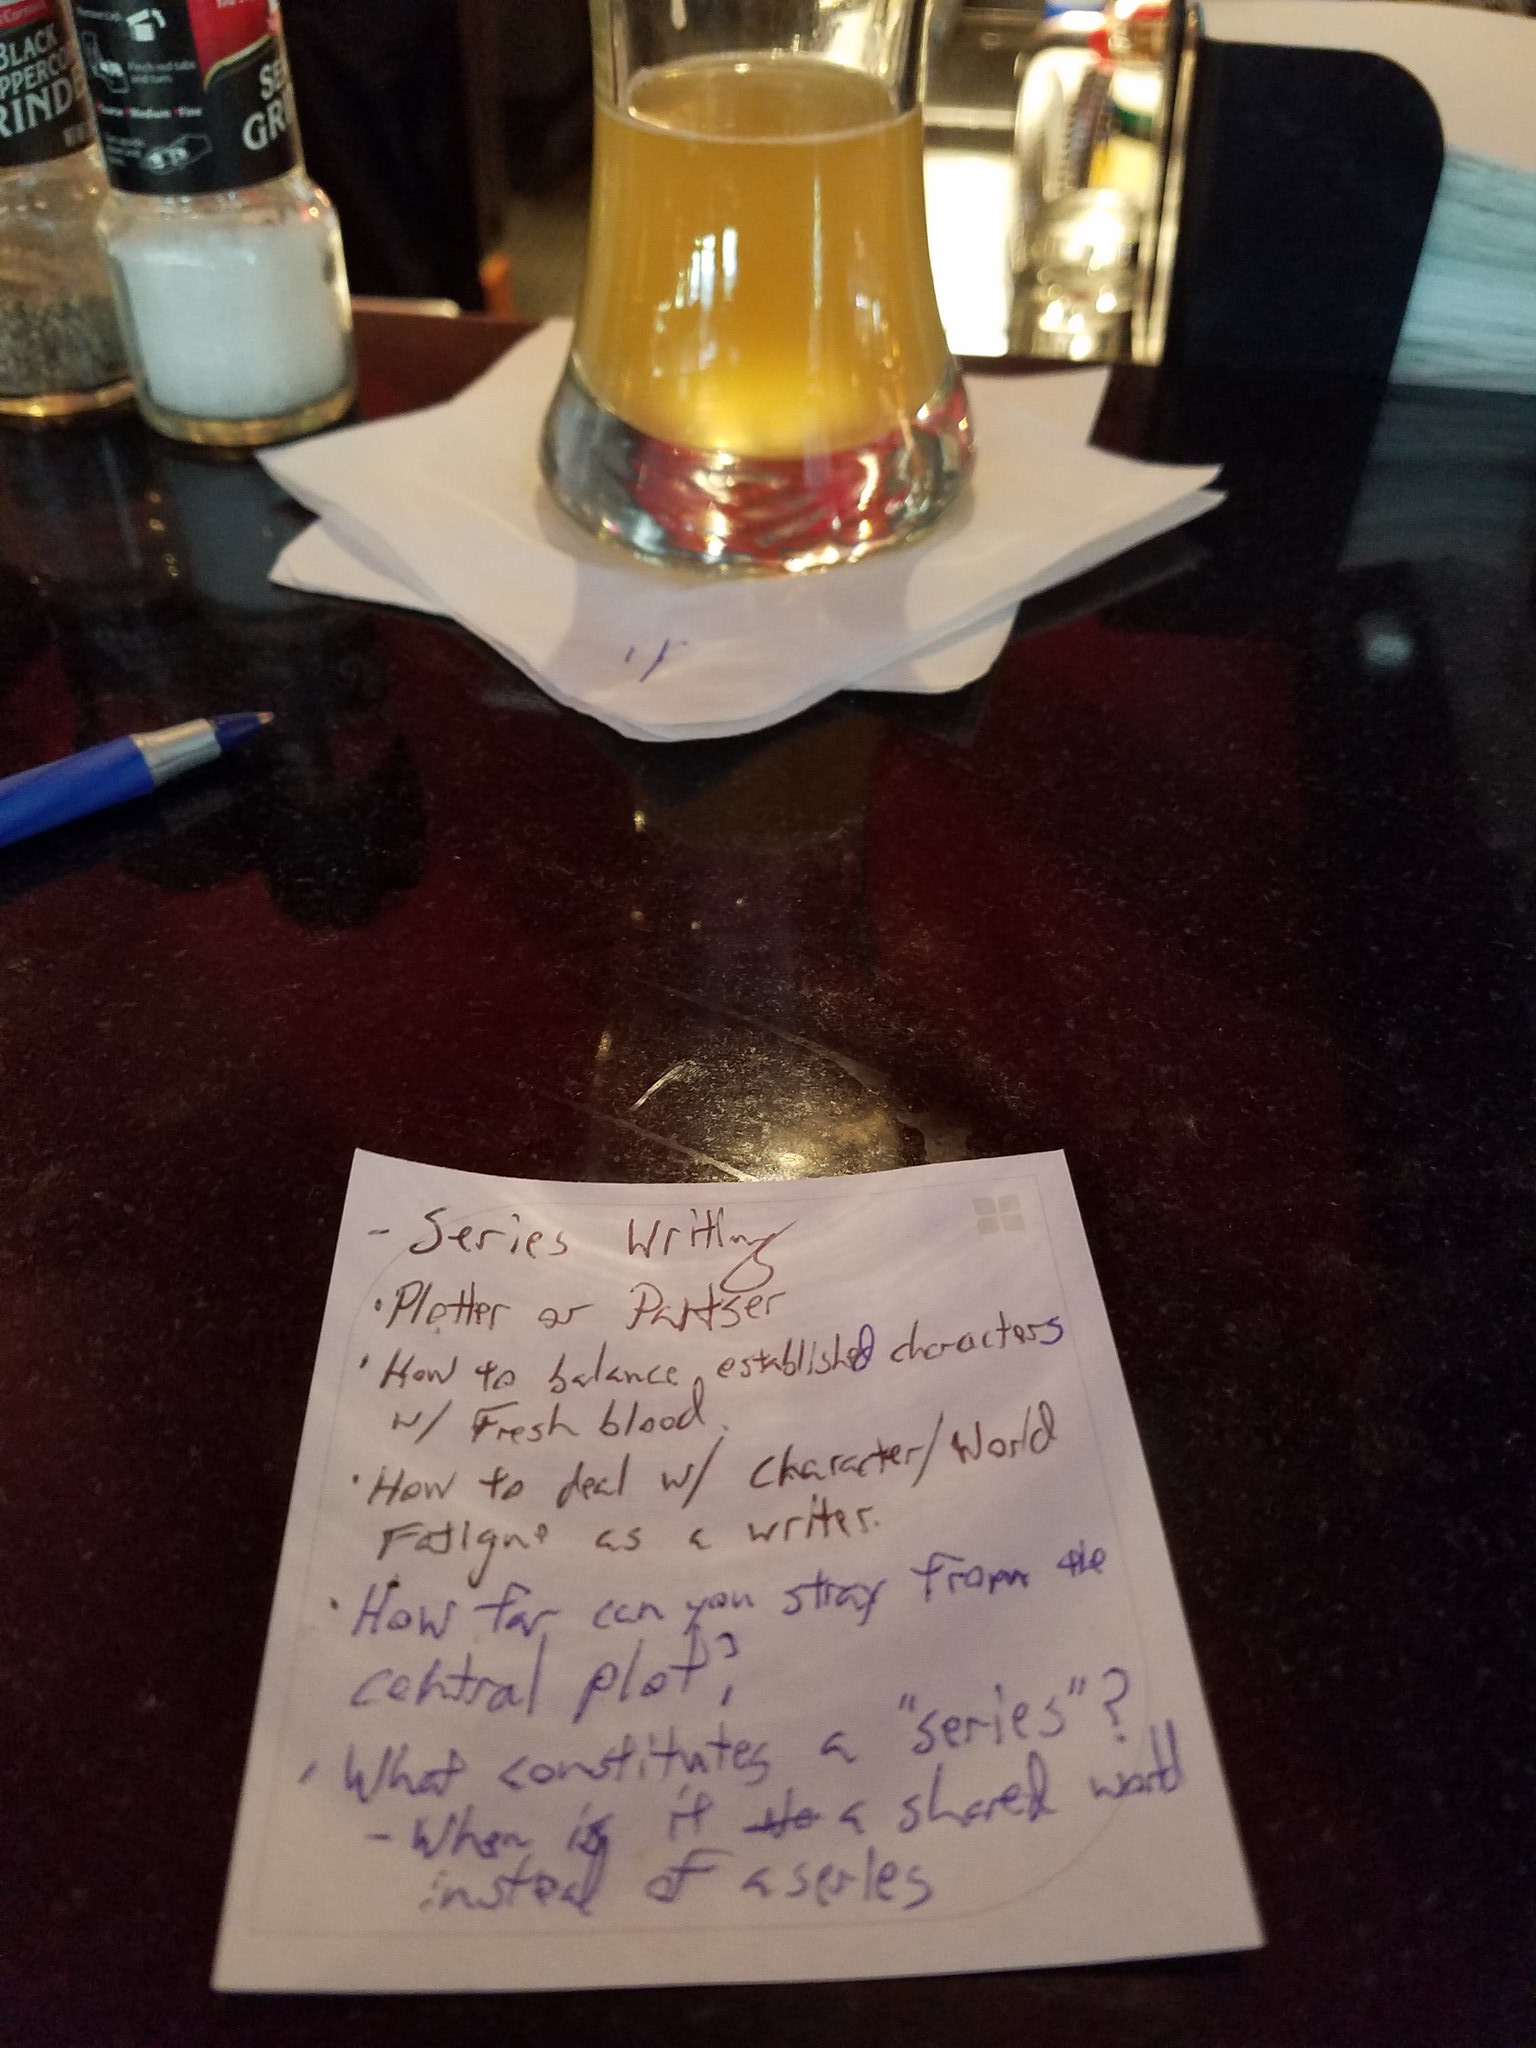 BLACK
GRIND
Pinch red tabs
and turn
Coarse Medium Fine
SE
GR
- Series Writing
• Plotter or Pantser
• How to balance established characters
w/ Fresh blood.
• How to deal w/ character/World
Fatigue as a writer.
• How far can you stray from the
central plot?
• What constitutes a "series"?
- When is it a shared world
instead of a series